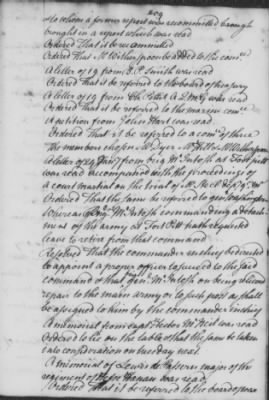 to whom a former report was recommitted brought
brought in a report which was read
Ordered That it be recommitted
Ordered That Mr Witherspoon be added to the com
A letter of 19 from J. Smith was read
Ordered That it be referred to the board of treasury
A letter of 19 from was read
Ordered That it be referred to the marine com
A petition from John Hart was read
Ordered That it be referred to a com of three
The members chosen Mr Dyer Mr Hill Mr Witherspoon
A letter of from brig McIntosh at Fort pitt
was read accompanied with the proceedings of
a court martial on the trial of
Ordered That the same be referred to gen Washington
Whereas brig McIntosh commanding a detach
ment of the army at Fort Pitt hath requested
leave to retire from that command
Resolved That the commander in chief be directed
to appoint a proper officer to succeed to the said
command & that gen McIntosh on being relieved
repair to the main army or to such post as shall
be assigned to him by the commander in chief
A memorial from capt Hector McNeil was read
Ordered to lie on the table & that the same be taken
into consideration on tuesday next
A memorial of Lewis major of the
regiment of was read
Ordered That it be referred to the board of war